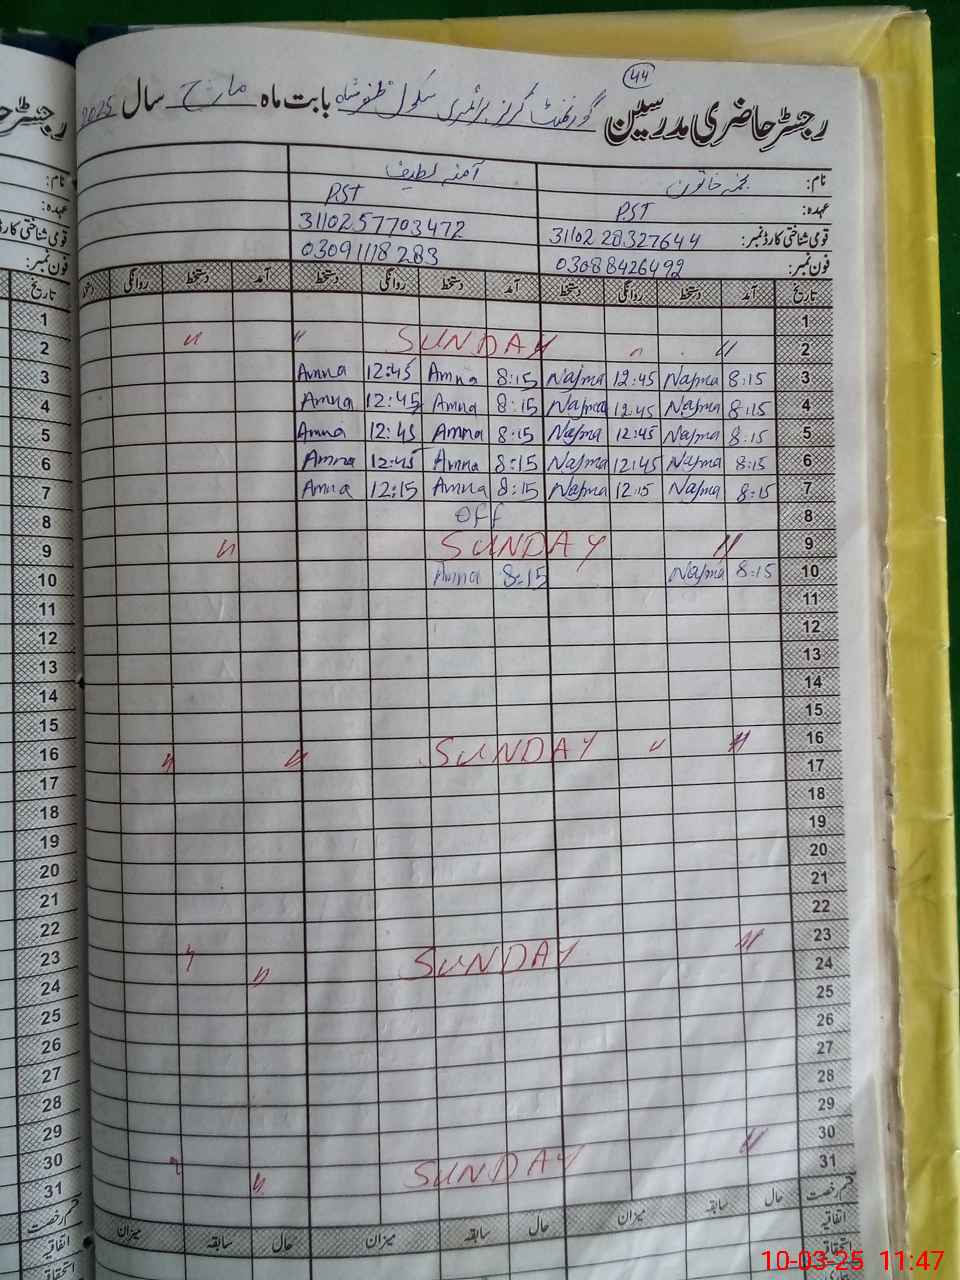 44
رجسٹر حاضری مدرسین گورنمنٹ گرلز پرائمری سکول بابت ماہ مارچ سال 2025
نام: نجمہ خاتون آمنہ لطیف
عہدہ: PST PST
قومی شناختی کارڈ نمبر: 31102 28327644 3110257703472
فون نمبر: 03088426492 03091118283
تاریخ آمد دستخط روانگی دستخط آمد دستخط روانگی دستخط آمد دستخط روانگی
1 1
2 " " SUNDAY " " 2
3 8:15 Najma 12:45 Najma 8:15 Amna 12:45 Amna 3
4 8:15 Najma 12:45 Najma 8:15 Amna 12:45 Amna 4
5 8:15 Najma 12:45 Najma 8:15 Amna 12:45 Amna 5
6 8:15 Najma 12:45 Najma 8:15 Amna 12:45 Amna 6
7 8:15 Najma 12:15 Najma 8:15 Amna 12:15 Amna 7
8 off 8
9 " SUNDAY " 9
10 8:15 Najma 8:15 Amna 10
11 11
12 12
13 13
14 14
15 15
16 " " SUNDAY " " 16
17 17
18 18
19 19
20 20
21 21
22 22
23 " SUNDAY " " 23
24 24
25 25
26 26
27 27
28 28
29 29
30 " SUNDAY " " 30
31 31
قسم رخصت حال سابقہ میزان حال سابقہ میزان حال سابقہ میزان قسم رخصت
اتفاقیہ اتفاقیہ
استحقاقیہ استحقاقیہ
10-03-25 11:47